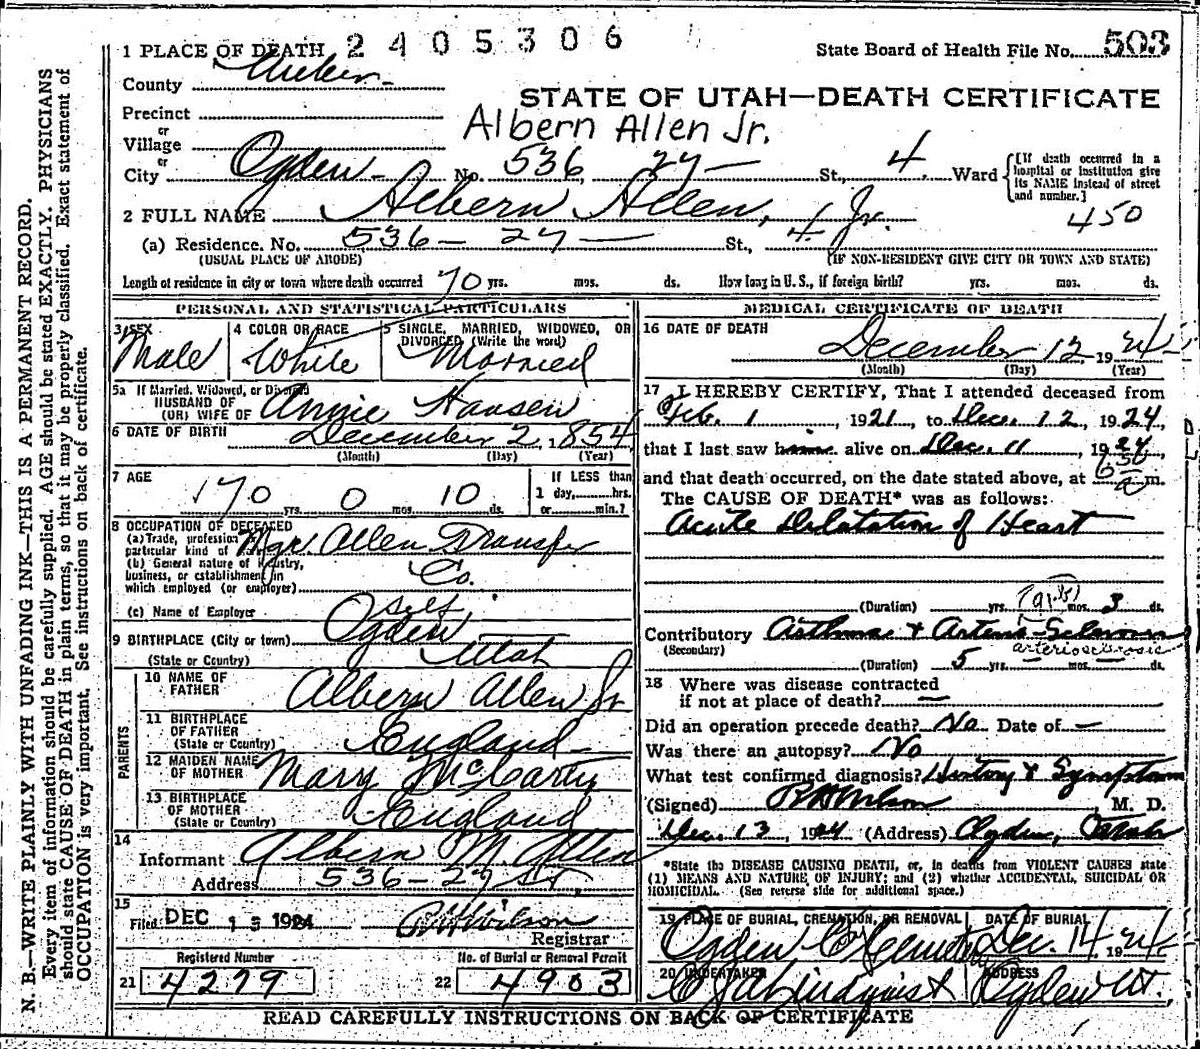 1 PLACE OF DEATH 2405306 State Board of Health File No. 503
County Weber
STATE OF UTAH—DEATH CERTIFICATE
Precinct
Albern Allen Jr.
or
Village
or
City Ogden No. 536, 27 — St., 4. Ward {[If death occurred in a hospital or institution give its NAME instead of street and number.]
450
2 FULL NAME Albern Allen, Jr.
(a) Residence. No. 536 — 27 — St., 4.
(USUAL PLACE OF ABODE) (IF NON-RESIDENT GIVE CITY OR TOWN AND STATE)
Length of residence in city or town where death occurred 70 yrs. mos. ds. How long in U. S., if foreign birth? yrs. mos. ds.
PERSONAL AND STATISTICAL PARTICULARS
3 SEX
Male
4 COLOR OR RACE
White
5 SINGLE, MARRIED, WIDOWED, OR
DIVORCED (Write the word)
Married
5a If Married, Widowed, or Divorced
HUSBAND OF
(OR) WIFE OF Annie Hansen
6 DATE OF BIRTH December 2, 1854
(Month) (Day) (Year)
7 AGE
70 yrs. 0 mos. 10 ds.
If LESS than
1 day, hrs.
or min.?
8 OCCUPATION OF DECEASED
(a) Trade, profession
particular kind of Mgr. Allen Transfer
(b) General nature of industry,
business, or establishment in
which employed (or employer) Co.
(c) Name of Employer Self
9 BIRTHPLACE (City or town) Ogden
(State or Country) Utah
PARENTS
10 NAME OF
FATHER Albern Allen Sr
11 BIRTHPLACE
OF FATHER
(State or Country) England
12 MAIDEN NAME
OF MOTHER Mary McCarty
13 BIRTHPLACE
OF MOTHER
(State or Country) England
14
Informant Albern M Allen
Address 536 — 27 St,
15
Filed DEC 15 1924 R H Wilson
Registrar
Registered Number
21 4279
No. of Burial or Removal Permit
22 4903
MEDICAL CERTIFICATE OF DEATH
16 DATE OF DEATH
December 12 1924
(Month) (Day) (Year)
17 I HEREBY CERTIFY, That I attended deceased from
Feb. 1 1921, to Dec. 12, 1924,
that I last saw him alive on Dec. 11, 1924,
and that death occurred, on the date stated above, at a m.
The CAUSE OF DEATH* was as follows:
Acute Dilatation of Heart
(Duration) yrs. mos. 3 ds.
Contributory Asthma & Arterio-Sclerosis
(Secondary) arteriosclerosis
(Duration) 5 yrs. — mos. — ds.
18 Where was disease contracted
if not at place of death? —
Did an operation precede death? No Date of —
Was there an autopsy? No
What test confirmed diagnosis? History & Symptoms
(Signed) R H Wilson, M. D.
Dec. 13, 1924 (Address) Ogden, Utah
*State the DISEASE CAUSING DEATH, or, in deaths from VIOLENT CAUSES state
(1) MEANS AND NATURE OF INJURY; and (2) whether ACCIDENTAL, SUICIDAL OR
HOMICIDAL. (See reverse side for additional space.)
19 PLACE OF BURIAL, CREMATION, OR REMOVAL
Ogden City Cemetery
DATE OF BURIAL
Dec. 14, 1924
20 UNDERTAKER
Lindquist
ADDRESS
Ogden Ut.
READ CAREFULLY INSTRUCTIONS ON BACK OF CERTIFICATE
N. B.—WRITE PLAINLY WITH UNFADING INK—THIS IS A PERMANENT RECORD.
Every item of information should be carefully supplied. AGE should be stated EXACTLY. PHYSICIANS
should state CAUSE OF DEATH in plain terms, so that it may be properly classified. Exact statement of
OCCUPATION is very important. See instructions on back of certificate.